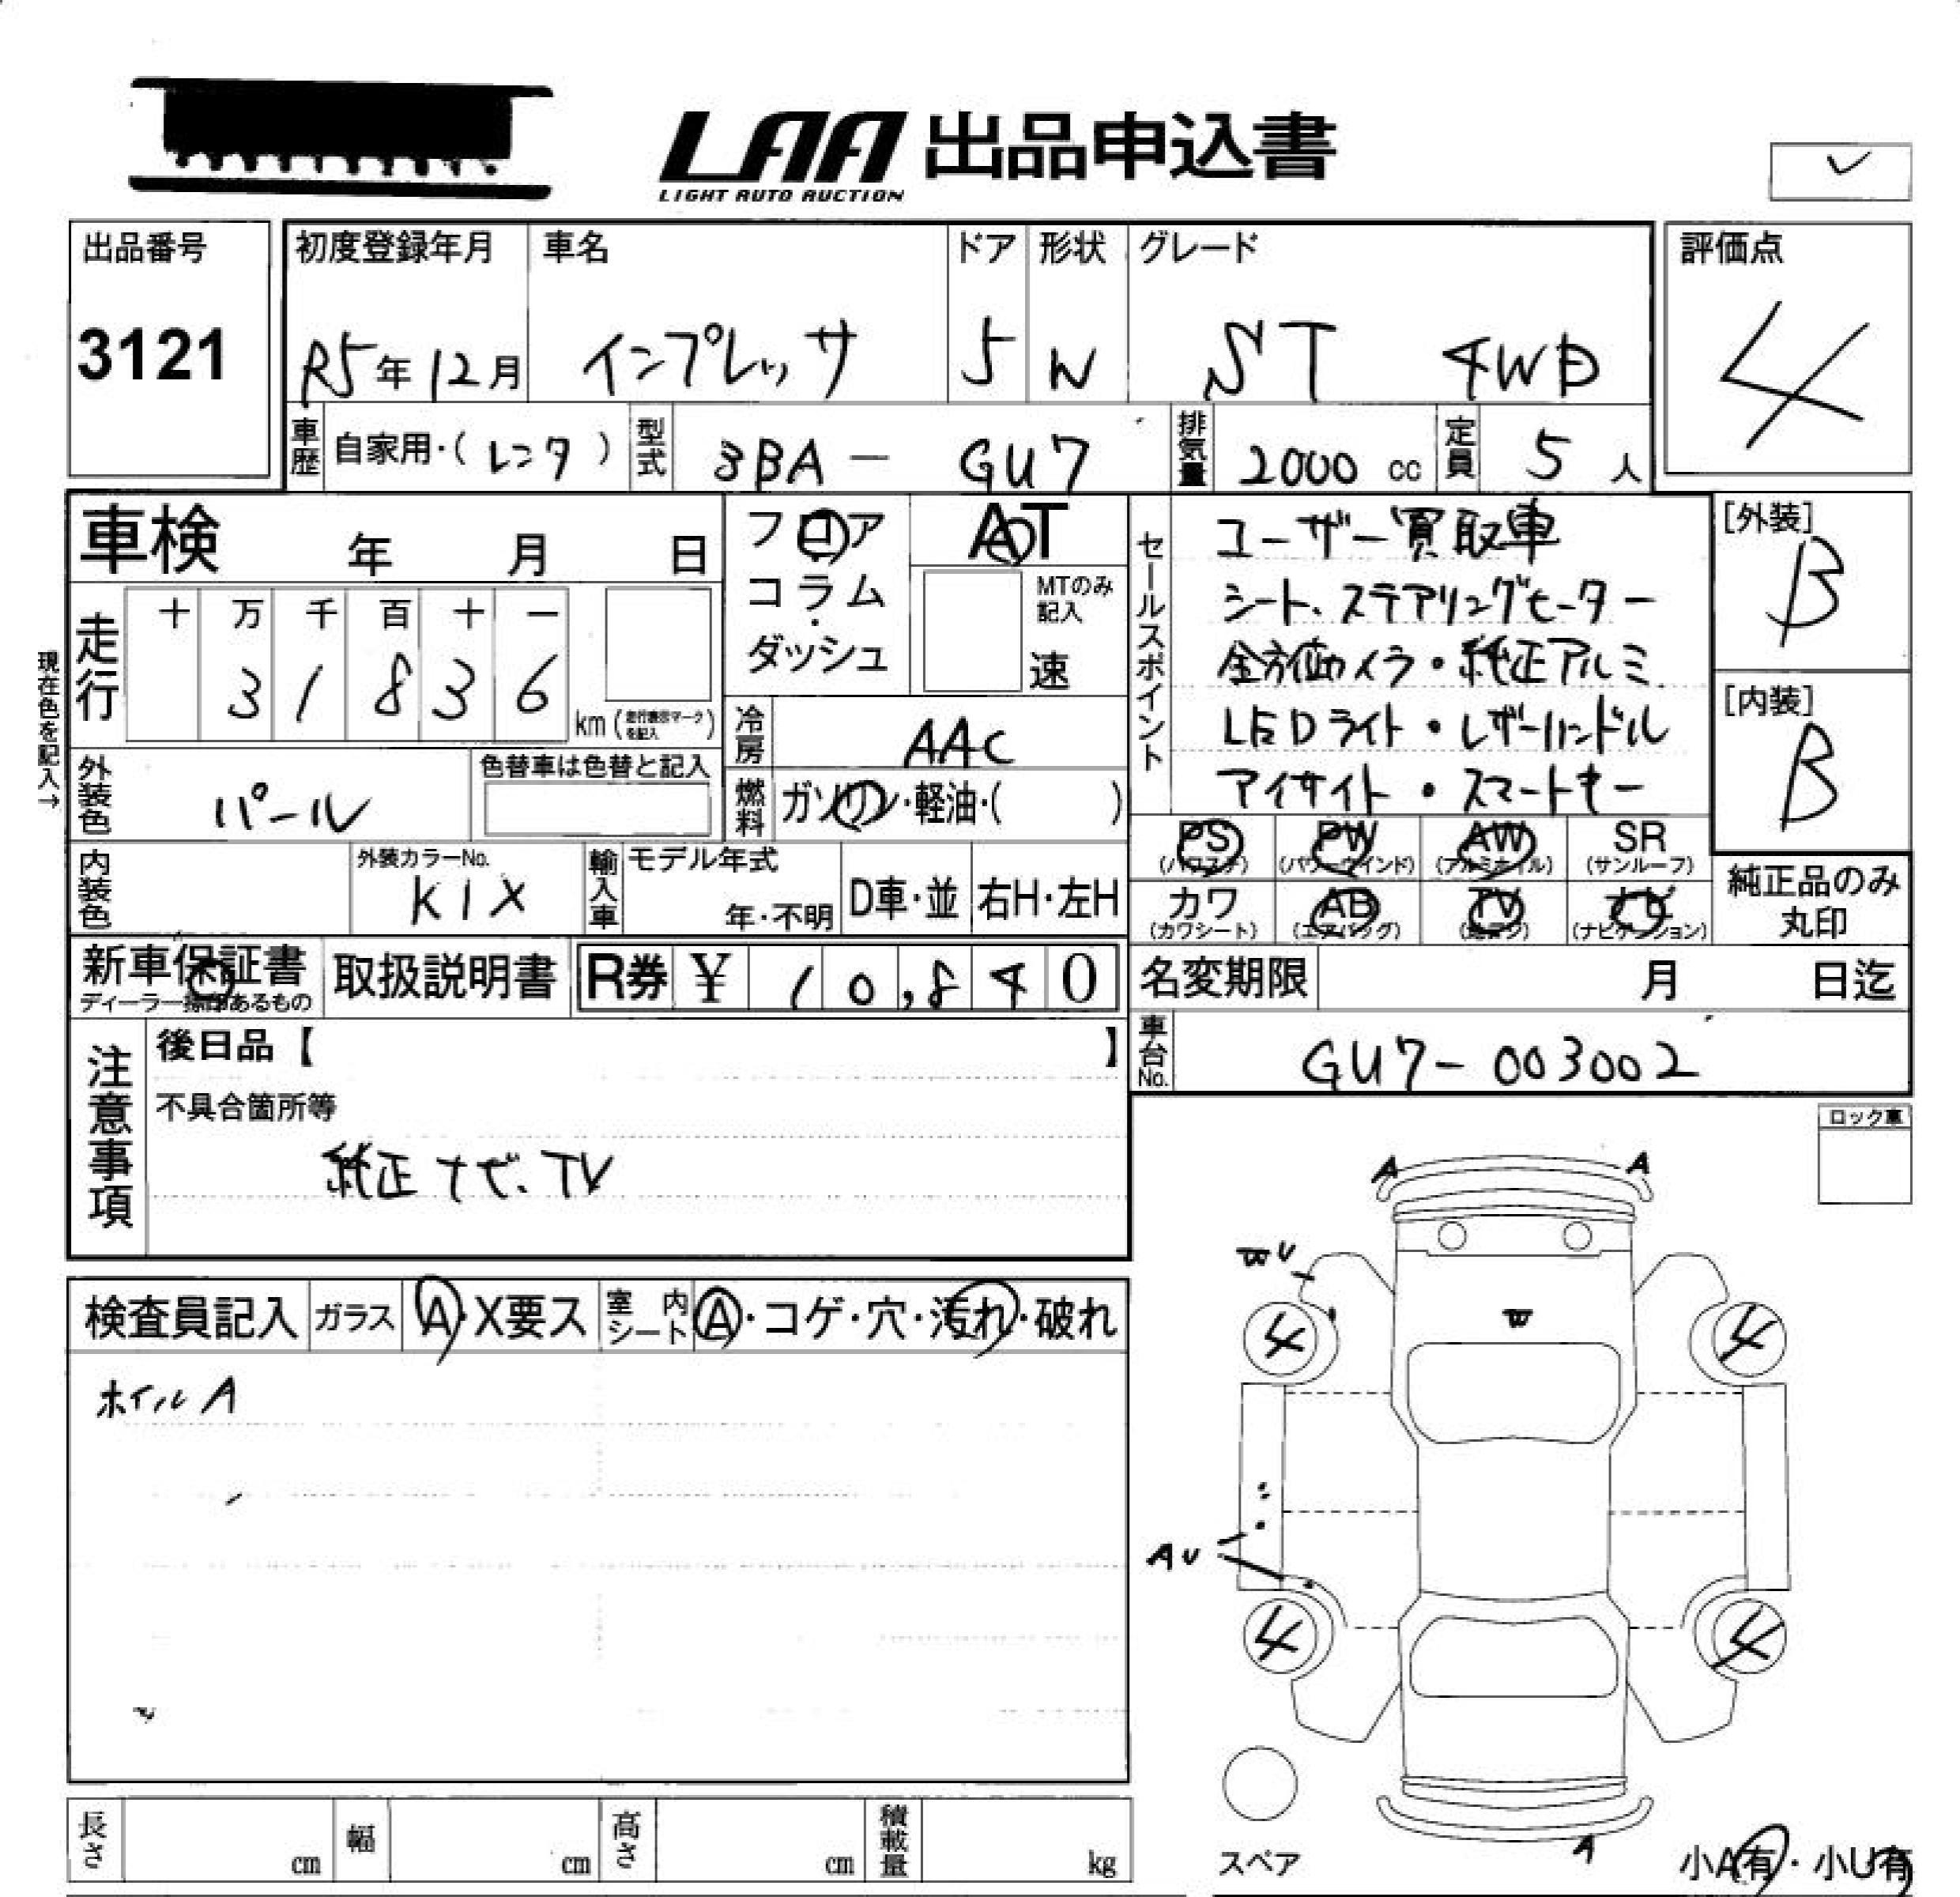 LAA 出品申込書
LIGHT AUTO AUCTION
出品番号
3121
初度登録年月
R5年12月
車名
インプレッサ
ドア
5
形状
W
グレード
ST 4WD
評価点
4
車歴
自家用・(レンタ)
型式
3BA - GU7
排気量
2000 cc
定員
5 人
車検 年 月 日
フロア
コラム
・
ダッシュ
AT
MTのみ
記入
速
セールスポイント
ユーザー買取車
シート、ステアリングヒーター
全方位カメラ・純正アルミ
LEDライト・レザーハンドル
アイサイト・スマートキー
[外装]
B
[内装]
B
現在色を記入→
走行
十 万 千 百 十 一
3 1 8 3 6
km (走行表示マークを記入)
冷房
AAC
外装色
パール
色替車は色替と記入
燃料
ガソリン・軽油・( )
内装色
外装カラーNo.
K1X
輸入車
モデル年式
年・不明
D車・並
右H・左H
PS
(パワステ)
PW
(パワーウインド)
AW
(アルミホイル)
SR
(サンルーフ)
カワ
(カワシート)
AB
(エアバッグ)
TV
ナビ
(ナビゲーション)
純正品のみ
丸印
新車保証書
ディーラー捺印あるもの
取扱説明書
R券 ¥ 10,840
名変期限 月 日迄
車台No.
GU7-003002
注意事項
後日品【 】
不具合箇所等
純正ナビ、TV
ロック車
検査員記入
ガラス
A・X要ス
室内シート
A・コゲ・穴・汚れ・破れ
ホイルA
A
A
W U
W
4
4
A U
4
4
A
スペア
小A有・小U有
長さ cm
幅 cm
高さ cm
積載量 kg